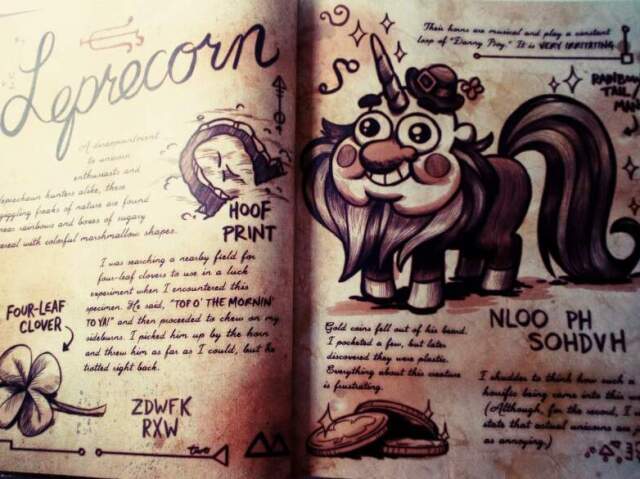 Leprecorn
A disappointment
to unicorn
enthusiasts and
leprechaun hunters alike, these
giggling freaks of nature are found
near rainbows and boxes of sugary
cereal with colorful marshmallow shapes.
HOOF
PRINT
I was searching a nearby field for
four-leaf clovers to use in a luck
experiment when I encountered this
specimen. He said, "TOP O' THE MORNIN'
TO YA!" and then proceeded to chew on my
sideburns. I picked him up by the horn
and threw him as far as I could, but he
trotted right back.
FOUR-LEAF
CLOVER
ZDWFK
RXW
two
Their horns are musical and play a constant
loop of "Danny Boy." It is VERY IRRITATING.
RAINBOW
TAIL /
NLOO PH
SOHDVH
Gold coins fell out of his beard.
I pocketed a few, but later
discovered they were plastic.
Everything about this creature
is frustrating.
I shudder to think how such a
horrific being came into this
(Although, for the record, I
state that actual unicorns are
as annoying.)